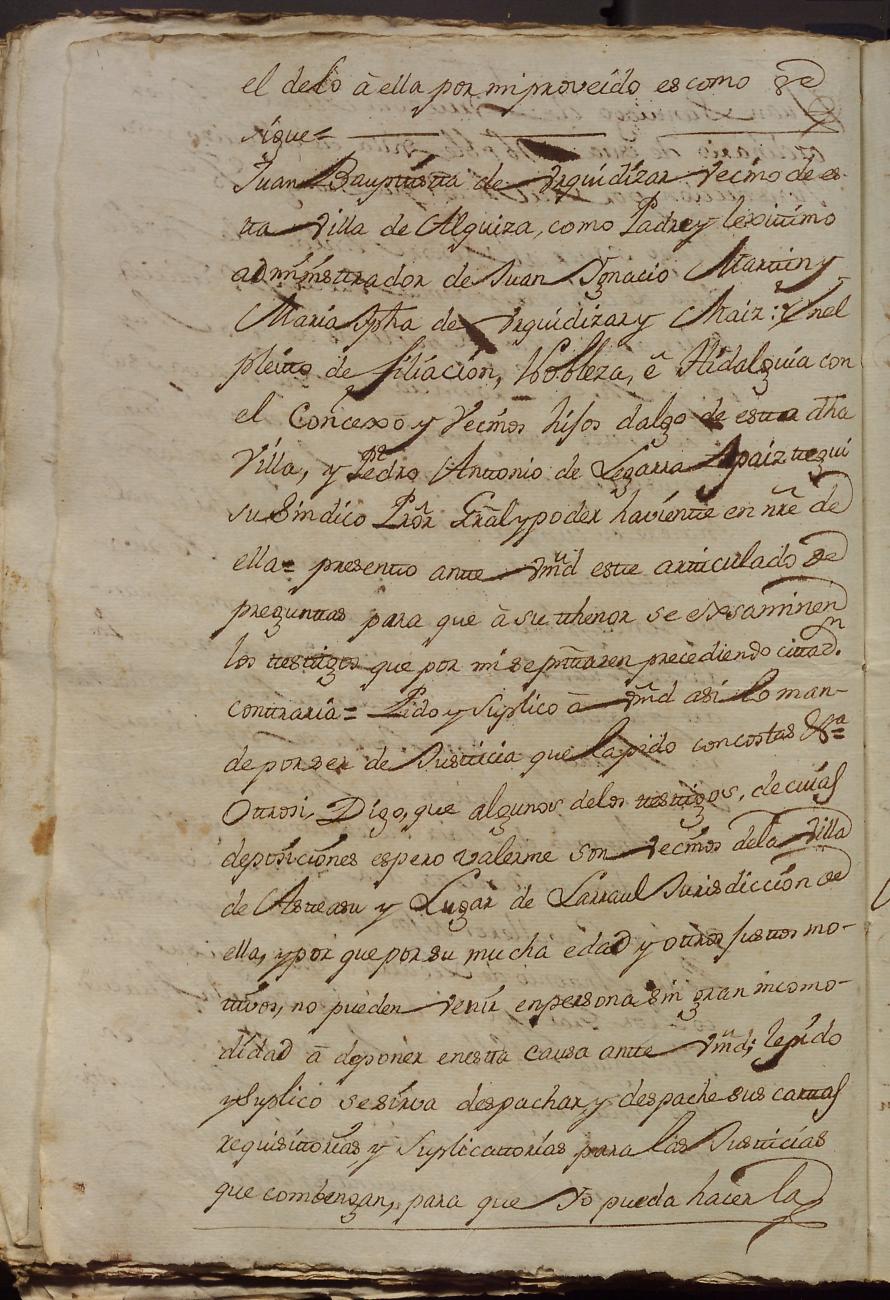 el de lo â ella por mi proveído es como se
sigue=
Juan Bauptistta de Vrquidizar Vecino de es-
tta Villa de Alquiza, como Padre y lexittimo
administtrador de Juan Ygnacio Marttin y
Maria Jpha de Vrquidizar y Maiz: Y nel
pleitto de filiación, Nobleza, ê Hidalguia con
el Concexo y Vecinos hijos dalgo de estta dha
Villa, y Pedro Anttonio de Legarra Apaizttegui
su Sindico Pror Gral y poder havientte en nre de
ella= presentto antte Vmd este artticulado de
pregunttas para que â su tthenor se exsaminen
los ttesttigos que por mi se pnttaren precediendo cittaон.
conttraria= Pido y suplico â Vmd asi lo man-
de por ser de Justticia que la pido con costas &a=
Ottrosi, Digo, que algunos de los ttesttigos, de cuias
deposiciones espero valerme son Vecinos de la Villa
de Astteasu y Lugar de Larraul Jurisdicción de
ella, y por que por su mucha edad y ottros justtos mo-
ttivos, no pueden venir en persona sin gran incomo-
didad â deponer en estta causa antte Vmd; le pido
y suplico se sirva despachar y despache sus carttas
requisittorias, y suplicattorias para las Justticias
que combengan, para que Yo pueda hacer la